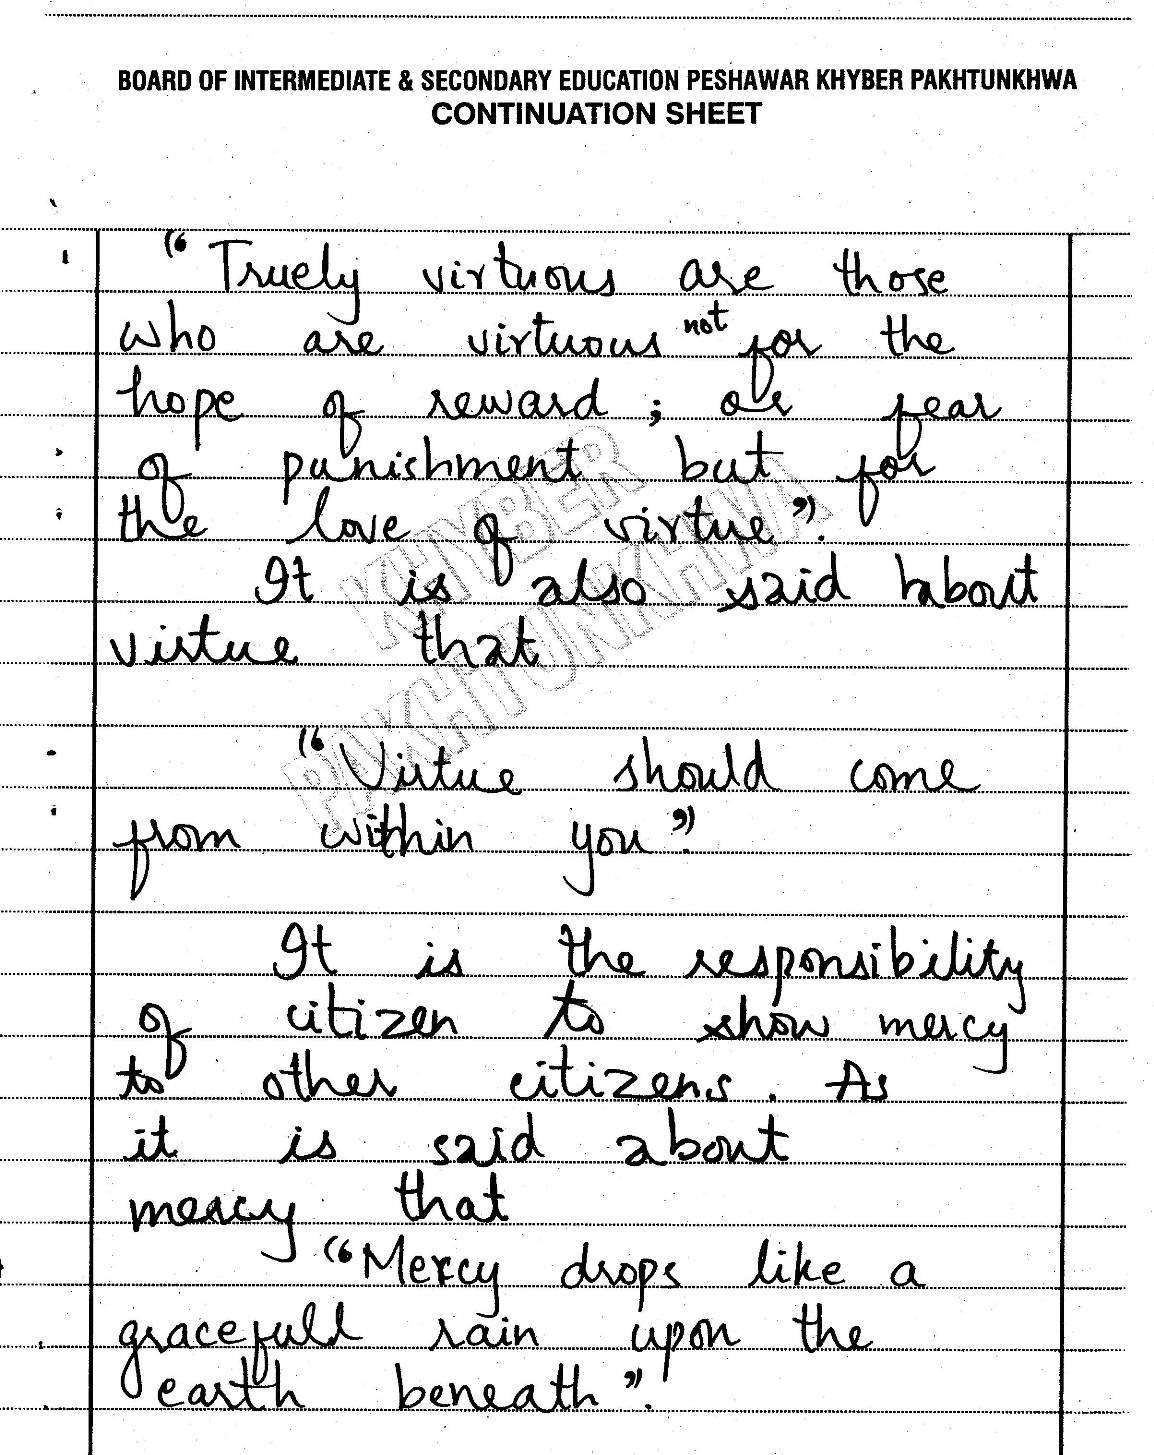 BOARD OF INTERMEDIATE & SECONDARY EDUCATION PESHAWAR KHYBER PAKHTUNKHWA
CONTINUATION SHEET
“Truely virtuous are those
who are virtuous not for the
hope of reward ; or fear
of punishment but for
the love of virtue”.
It is also said about
virtue that
KHYBER
PAKHTUNKHWA
“Virtue should come
from within you”.
It is the responsibility
of citizen to show mercy
to other citizens. As
it is said about
mercy that
“Mercy drops like a
gracefull rain upon the
earth beneath”.